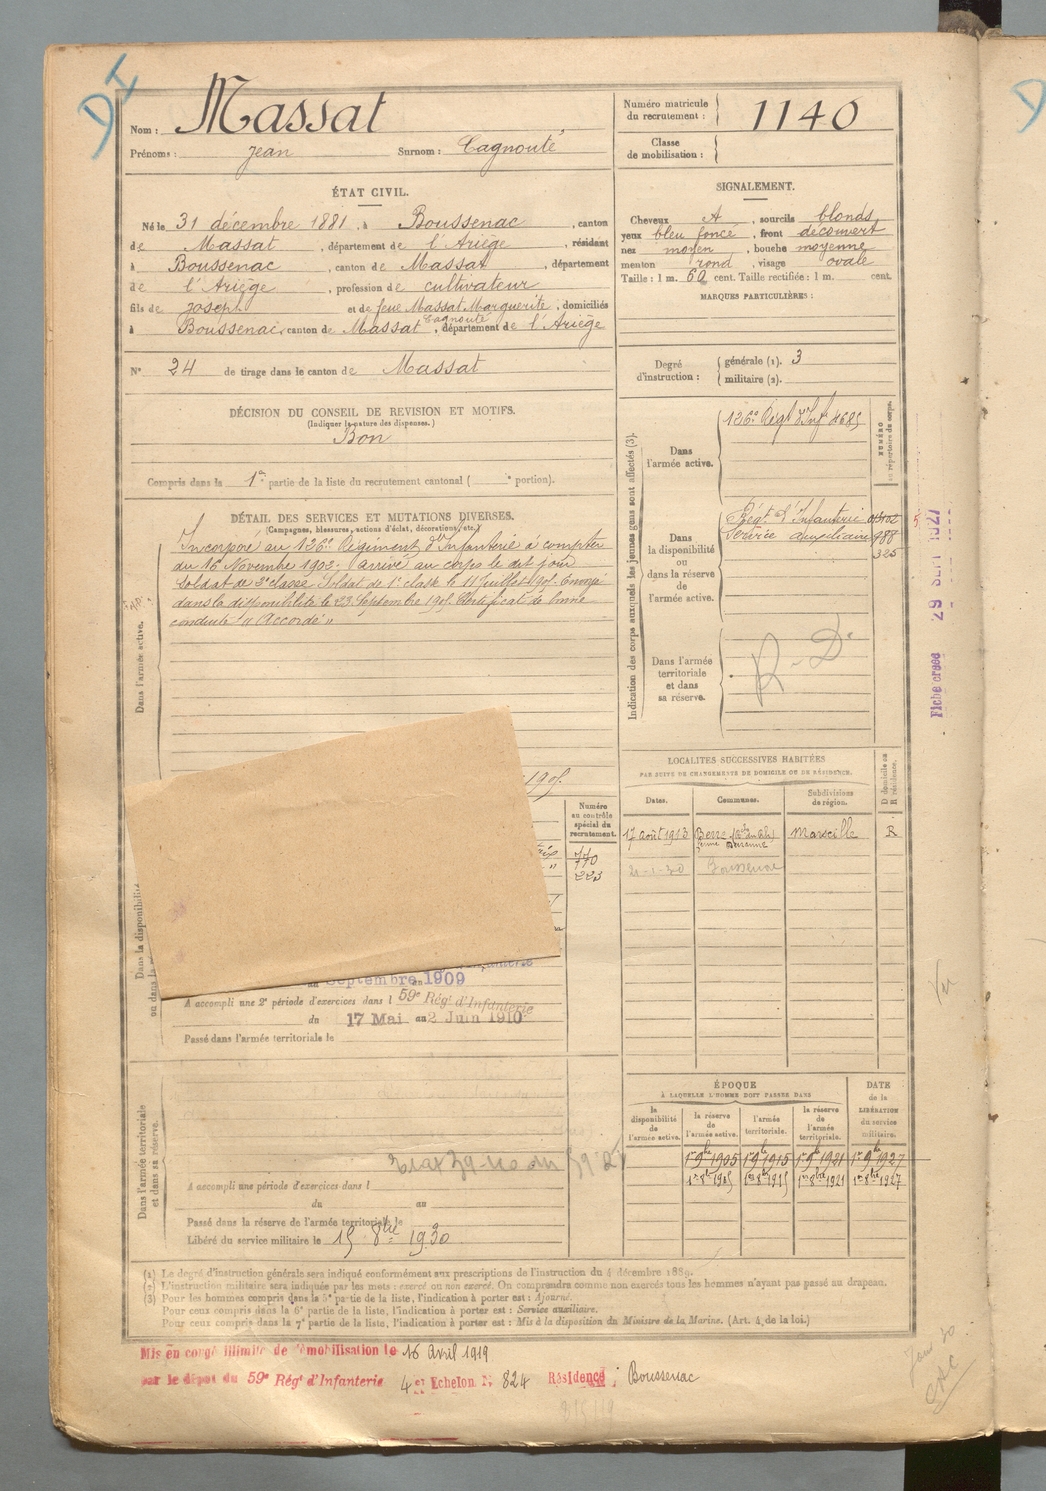 DI
Nom : Massat
Prénoms : Jean Surnom : Cagnouté
Numéro matricule
du recrutement : 1140
Classe
de mobilisation :
ÉTAT CIVIL.
Né le 31 décembre 1881, à Boussenac, canton
de Massat, département de l'Ariège, résidant
à Boussenac, canton de Massat, département
de l'Ariège, profession de cultivateur
fils de Joseph et de feue Massat Marguerite, domiciliés
Cagnouté
à Boussenac, canton de Massat, département de l'Ariège
N° 24 de tirage dans le canton de Massat
DÉCISION DU CONSEIL DE REVISION ET MOTIFS.
(Indiquer la nature des dispenses.)
Bon
Compris dans la 1re partie de la liste du recrutement cantonal ( e portion).
SIGNALEMENT.
Cheveux , sourcils blonds
yeux bleu foncé, front découvert
nez moyen, bouche moyenne
menton rond, visage ovale
Taille : 1 m. 60 cent. Taille rectifiée : 1 m. cent.
MARQUES PARTICULIÈRES :
Degré
d'instruction :
générale (1). 3
militaire (2).
DÉTAIL DES SERVICES ET MUTATIONS DIVERSES.
(Campagnes, blessures, actions d'éclat, décorations, etc.)
Dans l'armée active.
Incorporé au 126e Régiment d'Infanterie à compter
du 16 Novembre 1902; arrivé au corps le dit jour
Soldat de 2e classe Soldat de 1e classe le 11 Juillet 1905. Envoyé
dans la disponibilité le 23 Septembre 1905. Certificat de bonne
conduite "Accordé"
Indication des corps auxquels les jeunes gens sont affectés (3).
NUMÉRO
au répertoire du corps.
Dans
l'armée active.
126e Régt d'Inf. 4685
Dans
la disponibilité
ou
dans la réserve
de
l'armée active.
Régt. d'Infanterie
Service auxiliaire 988
325
Dans l'armée
territoriale
et dans
sa réserve.
R. D.
Fiche créée 29 SEPT 1927
1905
Numéro
au contrôle
spécial du
recrutement.
770
223
Dans la disponibilité
ou dans la
Septembre 1909
A accompli une 2e période d'exercices dans l 59e Régt d'Infanterie
du 17 Mai au 2 Juin 1910
Passé dans l'armée territoriale le
LOCALITÉS SUCCESSIVES HABITÉES
PAR SUITE DE CHANGEMENTS DE DOMICILE OU DE RÉSIDENCE.
Dates. Communes. Subdivisions
de région. D domicile ou
R résidence.
17 août 1913 Berre Marseille R
21-1-30 Boussenac
Dans l'armée territoriale
et dans sa réserve.
A accompli une période d'exercices dans l
du au
Passé dans la réserve de l'armée territoriale le
Libéré du service militaire le 15 8bre 1930
ÉPOQUE
À LAQUELLE L'HOMME DOIT PASSER DANS
la
disponibilité
de
l'armée active.
la réserve
de
l'armée active.
l'armée
territoriale.
la réserve
de
l'armée
territoriale.
DATE
de la
LIBÉRATION
du service
militaire.
1er 9bre 1905 1er 9bre 1915 1er 9bre 1921 1er 9bre 1927
1er 8bre 1905 1er 8bre 1915 1er 8bre 1921 1er 8bre 1927
(1) Le degré d'instruction générale sera indiqué conformément aux prescriptions de l'instruction du 4 décembre 1889.
(2) L'instruction militaire sera indiquée par les mots : exercé ou non exercé. On comprendra comme non exercés tous les hommes n'ayant pas passé au drapeau.
(3) Pour les hommes compris dans la 5e partie de la liste, l'indication à porter est : Ajourné.
Pour ceux compris dans la 6e partie de la liste, l'indication à porter est : Service auxiliaire.
Pour ceux compris dans la 7e partie de la liste, l'indication à porter est : Mis à la disposition du Ministre de la Marine. (Art. 4 de la loi.)
Mis en congé illimité de démobilisation le 16 Avril 1919
par le dépôt du 59e Régt d'Infanterie 4e Echelon N° 824 Résidence : Boussenac